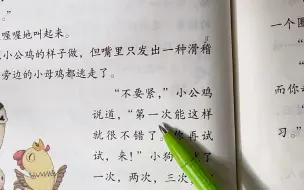 喔喔地叫起来。
”
小公鸡的样子做，但嘴里只发出一种滑稽
旁边的小母鸡都逃走了。
“不要紧，”小公鸡
说道，“第一次能这样
就很不错了。你再试
试，来！”小狗 了
一次，两次，三次，
一个圈
而你动